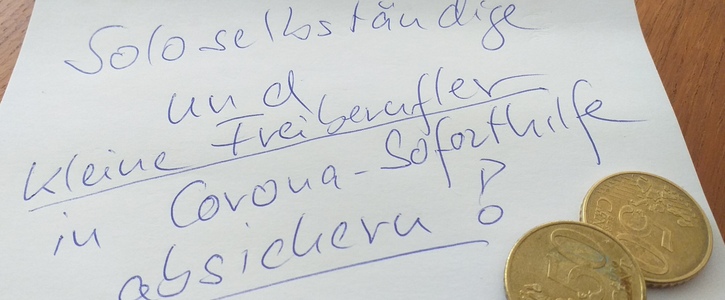 Soloselbständige
und
kleine Freiberufler
in Corona-Soforthilfe
absichern!
50